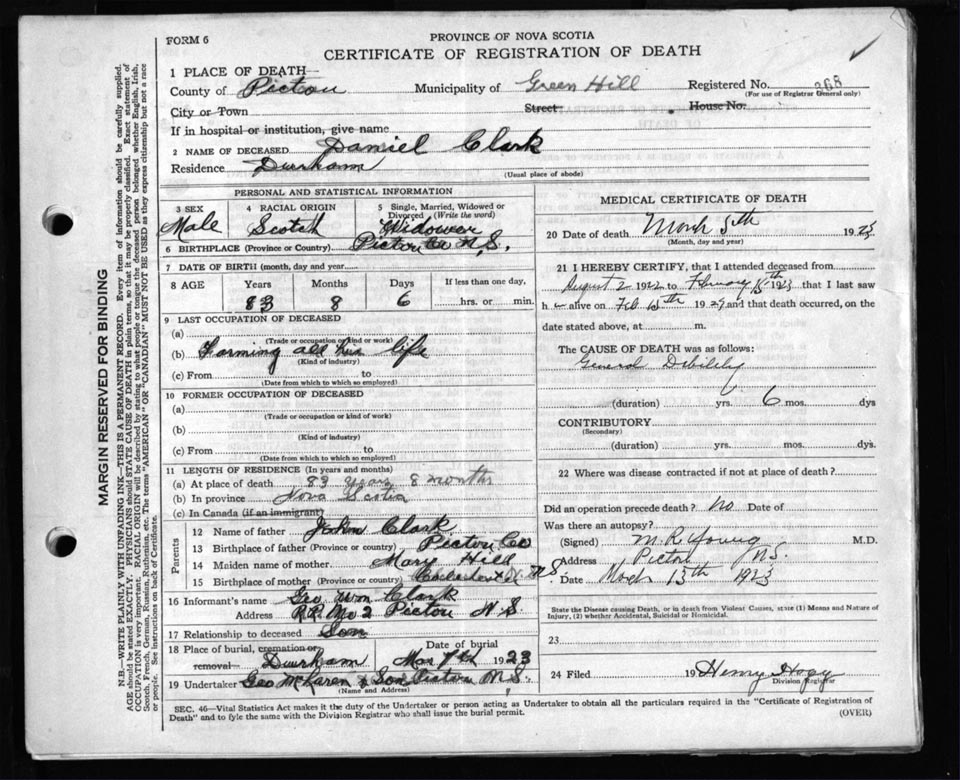 FORM 6
PROVINCE OF NOVA SCOTIA
CERTIFICATE OF REGISTRATION OF DEATH
1 PLACE OF DEATH
County of Pictou Municipality of Green Hill Registered No. 268
(For use of Registrar General only)
City or Town Street: House No:
If in hospital or institution, give name
2 NAME OF DECEASED Daniel Clark
Residence Durham
(Usual place of abode)
PERSONAL AND STATISTICAL INFORMATION
3 SEX Male
4 RACIAL ORIGIN Scotch
5 Single, Married, Widowed or Divorced (Write the word) Widower
6 BIRTHPLACE (Province or Country) Pictou Co N.S.
7 DATE OF BIRTH (month, day and year)
8 AGE Years Months Days If less than one day,
83 8 6 hrs. or min.
9 LAST OCCUPATION OF DECEASED
(a)
(Trade or occupation or kind of work)
(b) Farming all his life
(Kind of industry)
(c) From to
(Date from which to which so employed)
10 FORMER OCCUPATION OF DECEASED
(a)
(Trade or occupation or kind of work)
(b)
(Kind of industry)
(c) From to
(Date from which to which so employed)
11 LENGTH OF RESIDENCE (In years and months)
(a) At place of death 83 years 8 months
(b) In province Nova Scotia
(c) In Canada (if an immigrant)
Parents
12 Name of father John Clark
13 Birthplace of father (Province or country) Pictou Co
14 Maiden name of mother Mary Hill
15 Birthplace of mother (Province or country) N.S.
16 Informant's name Geo Wm Clark
Address R.R. No 2 Pictou N.S.
17 Relationship to deceased Son
18 Place of burial, cremation or removal Durham Date of burial Mar 7th 1923
19 Undertaker Geo McLaren & Son Pictou N.S.
(Name and Address)
MEDICAL CERTIFICATE OF DEATH
20 Date of death March 5th 1923
(Month, day and year)
21 I HEREBY CERTIFY, that I attended deceased from
August 2 1922 to February 1923 that I last saw
h alive on Feb 19 and that death occurred, on the
date stated above, at m.
The CAUSE OF DEATH was as follows:
General Debility
(duration) yrs. 6 mos. dys
CONTRIBUTORY
(Secondary)
(duration) yrs. mos. dys.
22 Where was disease contracted if not at place of death?
Did an operation precede death? No Date of
Was there an autopsy?
(Signed) M R Young M.D.
Address Pictou N.S.
Date March 13th 1923
State the Disease causing Death, or in death from Violent Causes, state (1) Means and Nature of
Injury, (2) whether Accidental, Suicidal or Homicidal.
23
24 Filed 19 Henry
Division Registrar
SEC. 46—Vital Statistics Act makes it the duty of the Undertaker or person acting as Undertaker to obtain all the particulars required in the "Certificate of Registration of
Death" and to fyle the same with the Division Registrar who shall issue the burial permit.
(OVER)
MARGIN RESERVED FOR BINDING
N.B.—WRITE PLAINLY WITH UNFADING INK—THIS IS A PERMANENT RECORD. Every item of information should be carefully supplied.
AGE should be stated EXACTLY. PHYSICIANS should STATE CAUSE OF DEATH in plain terms, so that it may be properly classified. Exact statement of
OCCUPATION is very important. RACIAL ORIGIN will be described by stating to what people or tongue the deceased person belonged whether English, Irish,
Scotch, French, German, Russian, Ruthenian, etc. The terms "AMERICAN" OR "CANADIAN" MUST NOT BE USED as they express citizenship but not a race
or people. See instructions on back of Certificate.